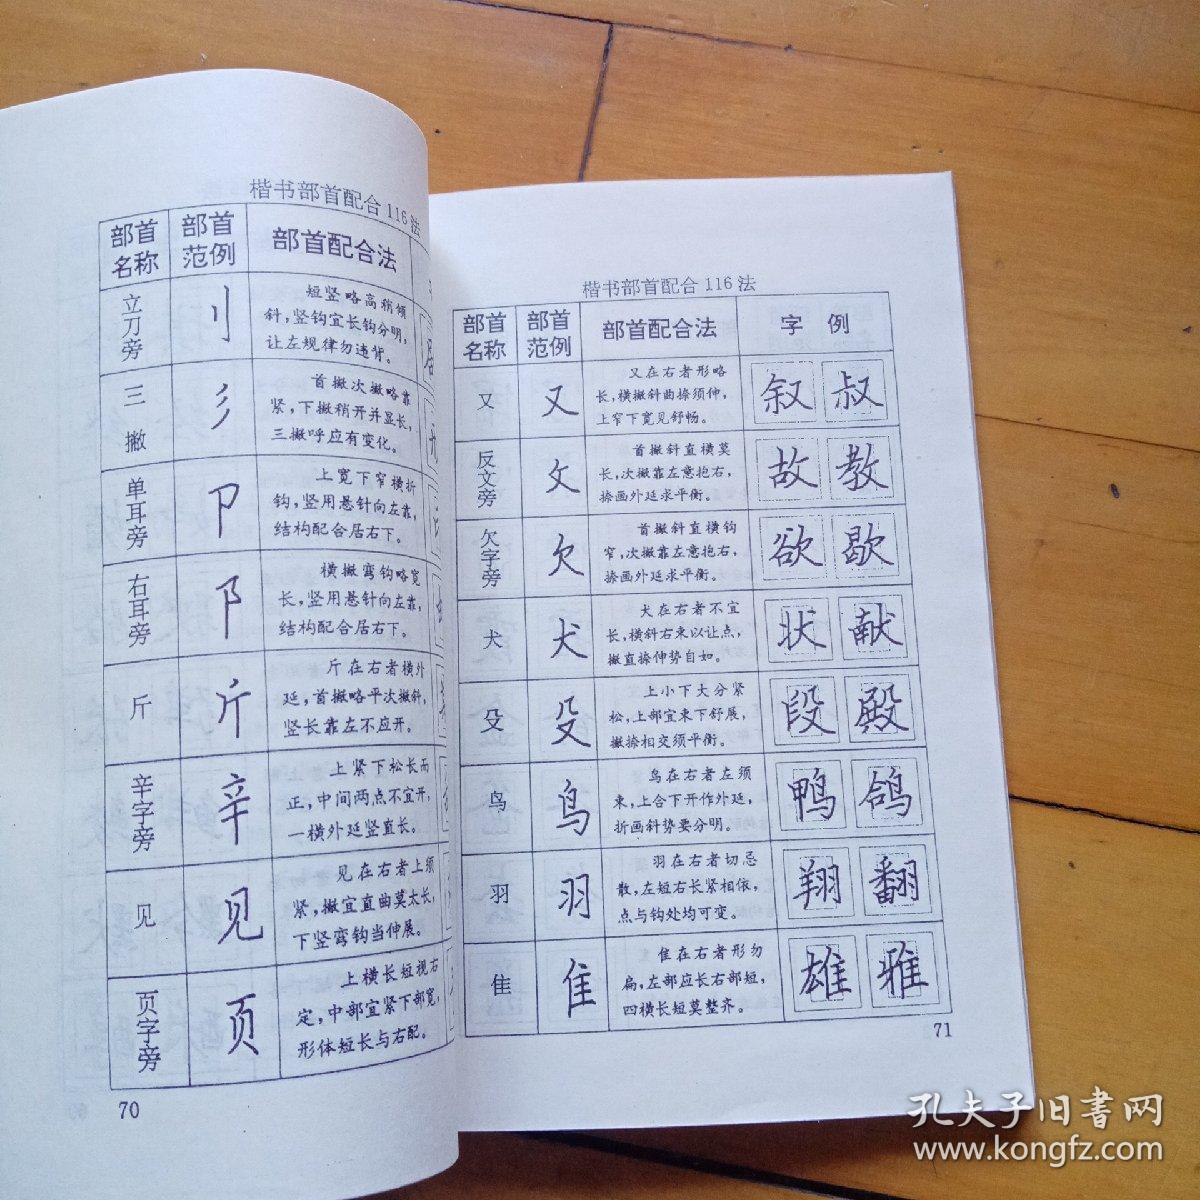 楷书部首配合116法
部首名称
部首范例
部首配合法
立刀旁
刂
短竖略高稍倾
斜，竖钩宜长钩分明，
让左规律勿违背。
三撇
彡
首撇次撇略靠
紧，下撇稍开并显长，
三撇呼应有变化。
单耳旁
卩
上宽下窄横折
钩，竖用悬针向左靠，
结构配合居右下。
右耳旁
阝
横撇弯钩略宽
长，竖用悬针向左靠，
结构配合居右下。
斤
斤
斤在右者横外
延，首撇略平次撇斜，
竖长靠左不应开。
辛字旁
辛
上紧下松长而
正，中间两点不宜开，
一横外延竖直长。
见
见
见在右者上须
紧，撇宜直曲莫太长，
下竖弯钩当伸展。
页字旁
页
上横长短视右
定，中部宜紧下部宽，
形体短长与右配。
70
楷书部首配合116法
部首名称
部首范例
部首配合法
字 例
又
又
又在右者形略
长，横撇斜曲捺须伸，
上窄下宽见舒畅。
叙 叔
反文旁
攵
首撇斜直横莫
长，次撇靠左意抱右，
捺画外延求平衡。
故 教
欠字旁
欠
首撇斜直横钩
窄，次撇靠左意抱右，
捺画外延求平衡。
欲 歇
犬
犬
犬在右者不宜
长，横斜右束以让点，
撇直捺伸势自如。
状 献
殳
殳
上小下大分紧
松，上部宜束下舒展，
撇捺相交须平衡。
段 殿
鸟
鸟
鸟在右者左须
束，上合下开作外延，
折画斜势要分明。
鸭 鸽
羽
羽
羽在右者切忌
散，左短右长紧相依，
点与钩处均可变。
翔 翻
隹
隹
隹在右者形勿
扁，左部应长右部短，
四横长短莫整齐。
雄 雅
71
孔夫子旧书网
www.kongfz.com